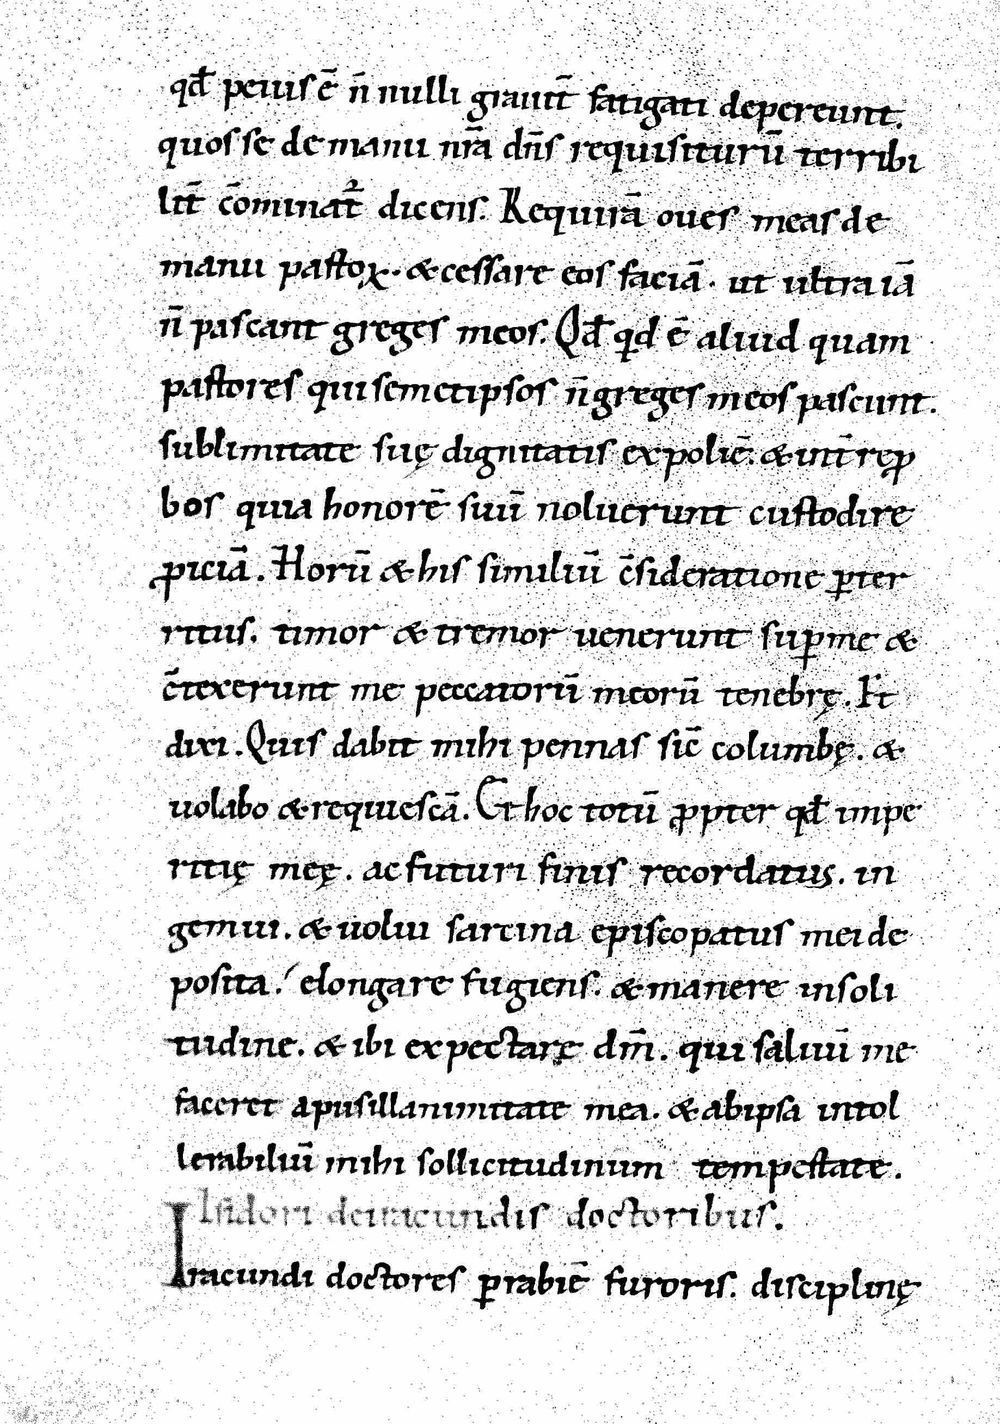 qđ peius ē n̄ nulli grauit̄ fatigati depereunt.
quos se de manu nr̄a dn̄s requisiturū terribi
lit̄ c̄ominat᷑ dicens. Requirā oues meas de
manu pastoꝝ. & cessare eos faciā. ut ultra iā
n̄ pascant greges meos. Qđ qd ē aliud quam
pastores qui semetipsos n̄ greges meos pascunt.
sublimitate suę dignitatis expoliē. & int̄ reꝓ
bos quia honorē suū noluerunt custodire
ꝓiciā. Horū & his similiū c̄sideratione ꝑter
ritus. timor & tremor uenerunt suꝑ me &
c̄texerunt me peccatorū meorū tenebrę. Et
dixi. Quis dabit mihi pennas sic̄ columbę. &
uolabo & requiescā. Et hoc totū ꝓpter qđ impe
ritię meę. ac futuri finis recordatus. in
gemui. & uolui sarcina episcopatus mei de
posita. elongare fugiens. & manere in soli
tudine. & ibi expectare dm̄. qui saluū me
faceret a pusillanimitate mea. & ab ipsa intol
lerabiliū mihi sollicitudinum tempestate.
Isidori de iracundis doctoribus.
Iracundi doctores ꝑ rabiē furoris. disciplinę